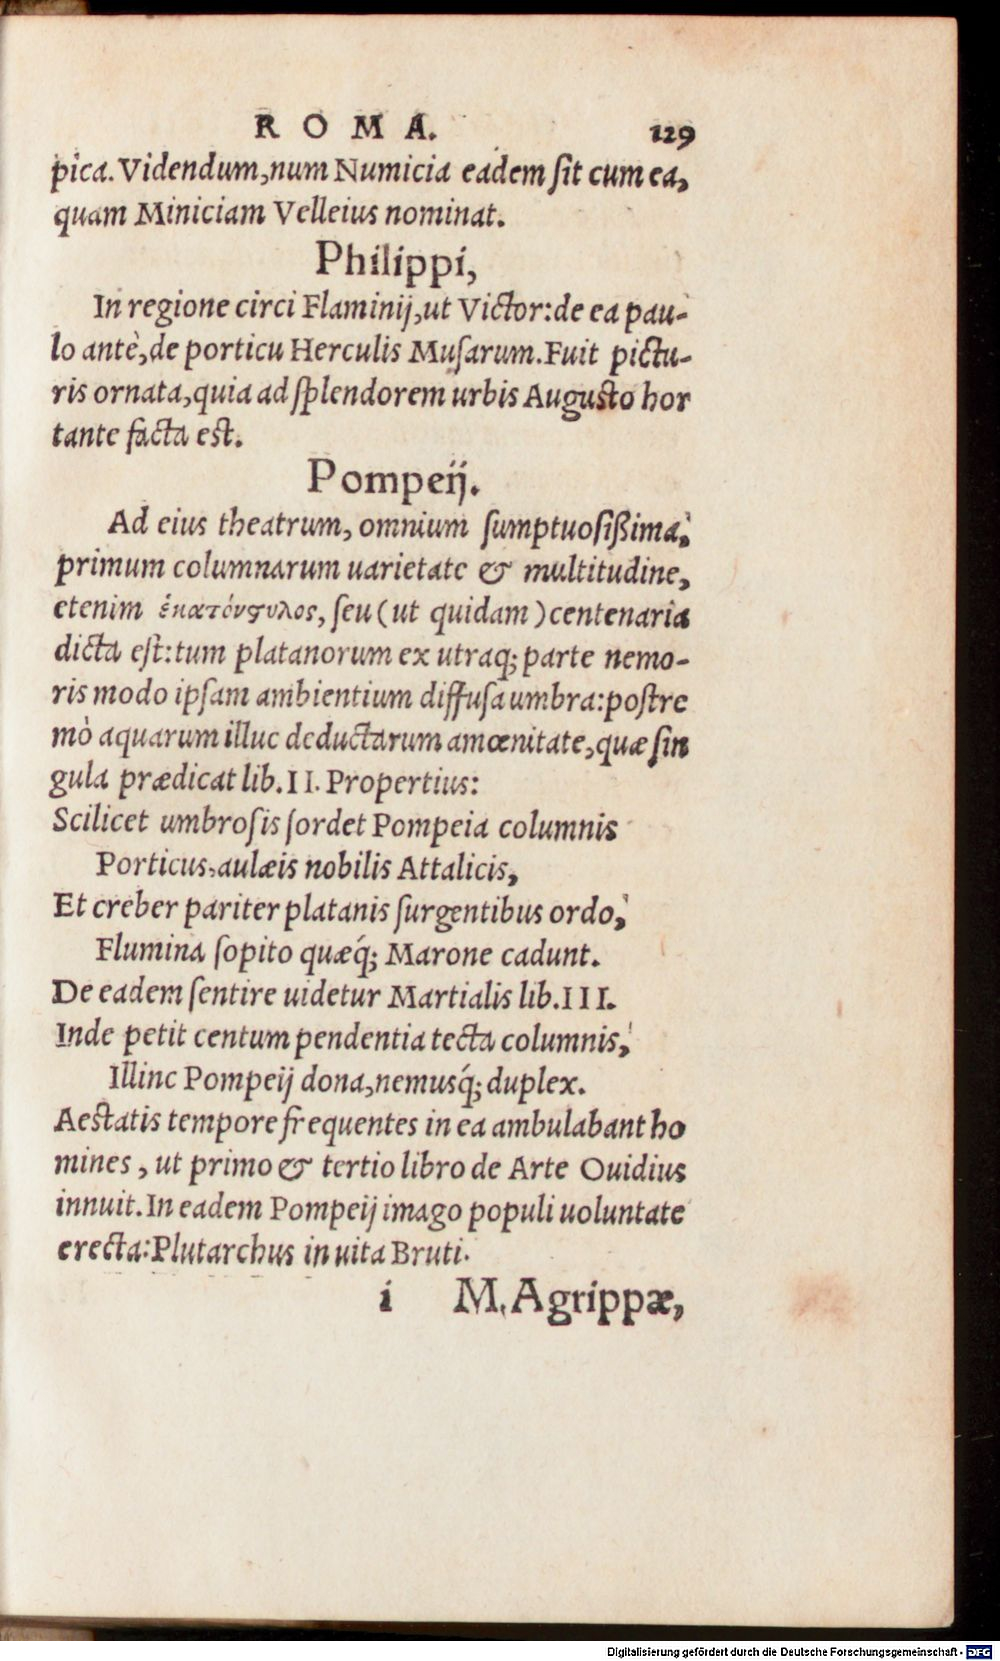 ROMA. 129
pica. Videndum, num Numicia eadem sit cum ea,
quam Miniciam Velleius nominat.
Philippi,
In regione circi Flaminij, ut Victor: de ea pau-
lo antè, de porticu Herculis Musarum. Fuit pictu-
ris ornata, quia ad splendorem urbis Augusto hor
tante facta est.
Pompeij.
Ad eius theatrum, omnium sumptuosißima,
primum columnarum uarietate & multitudine,
etenim ἑκατόνϛυλος, seu (ut quidam) centenaria
dicta est: tum platanorum ex utraq; parte nemo-
ris modo ipsam ambientium diffusa umbra: postre
mò aquarum illuc deductarum amœnitate, quæ sin
gula prædicat lib. II. Propertius:
Scilicet umbrosis sordet Pompeia columnis
Porticus, aulæis nobilis Attalicis,
Et creber pariter platanis surgentibus ordo,
Flumina sopito quæq́; Marone cadunt.
De eadem sentire uidetur Martialis lib. III.
Inde petit centum pendentia tecta columnis,
Illinc Pompeij dona, nemusq́; duplex.
Aestatis tempore frequentes in ea ambulabant ho
mines, ut primo & tertio libro de Arte Ouidius
innuit. In eadem Pompeij imago populi uoluntate
erecta: Plutarchus in uita Bruti.
i M. Agrippæ,
Digitalisierung gefördert durch die Deutsche Forschungsgemeinschaft - DFG